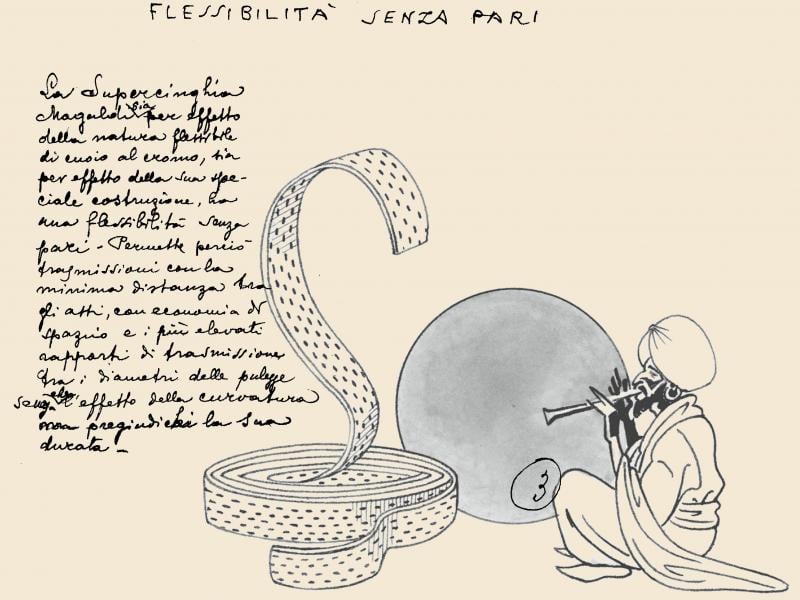 FLESSIBILITÀ SENZA PARI
La Supercinghia
Magaldi sia per effetto
della natura flessibile
di cuoio al cromo, sia
per effetto della sua spe-
ciale costruzione, ha
una flessibilità senza
pari - Permette perciò
trasmissioni con la
minima distanza tra
gli assi, con economia di
spazio e i più elevati
rapporti di trasmissione
tra i diametri delle pulegge
senza che l'effetto della curvatura
pregiudichi la sua
durata -
3